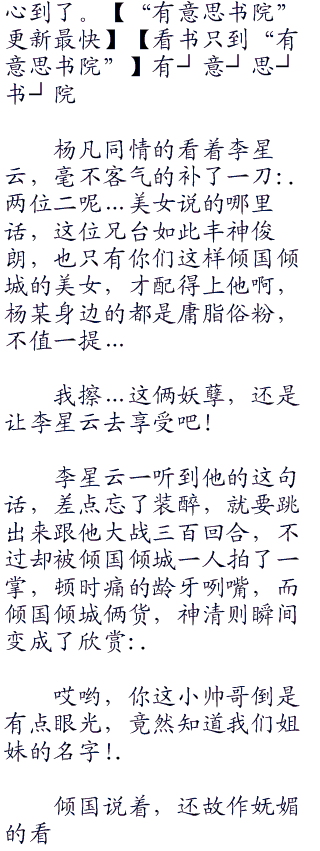 心到了。【“有意思书院”
更新最快】【看书只到“有
意思书院”】有┘意┘思┘
书┘院
杨凡同情的看着李星
云，毫不客气的补了一刀:.
两位二呢…美女说的哪里
话，这位兄台如此丰神俊
朗，也只有你们这样倾国倾
城的美女，才配得上他啊，
杨某身边的都是庸脂俗粉，
不值一提…
我擦…这俩妖孽，还是
让李星云去享受吧！
李星云一听到他的这句
话，差点忘了装醉，就要跳
出来跟他大战三百回合，不
过却被倾国倾城一人拍了一
掌，顿时痛的龄牙咧嘴，而
倾国倾城俩货，神清则瞬间
变成了欣赏:.
哎哟，你这小帅哥倒是
有点眼光，竟然知道我们姐
妹的名字!.
倾国说着，还故作妩媚
的看